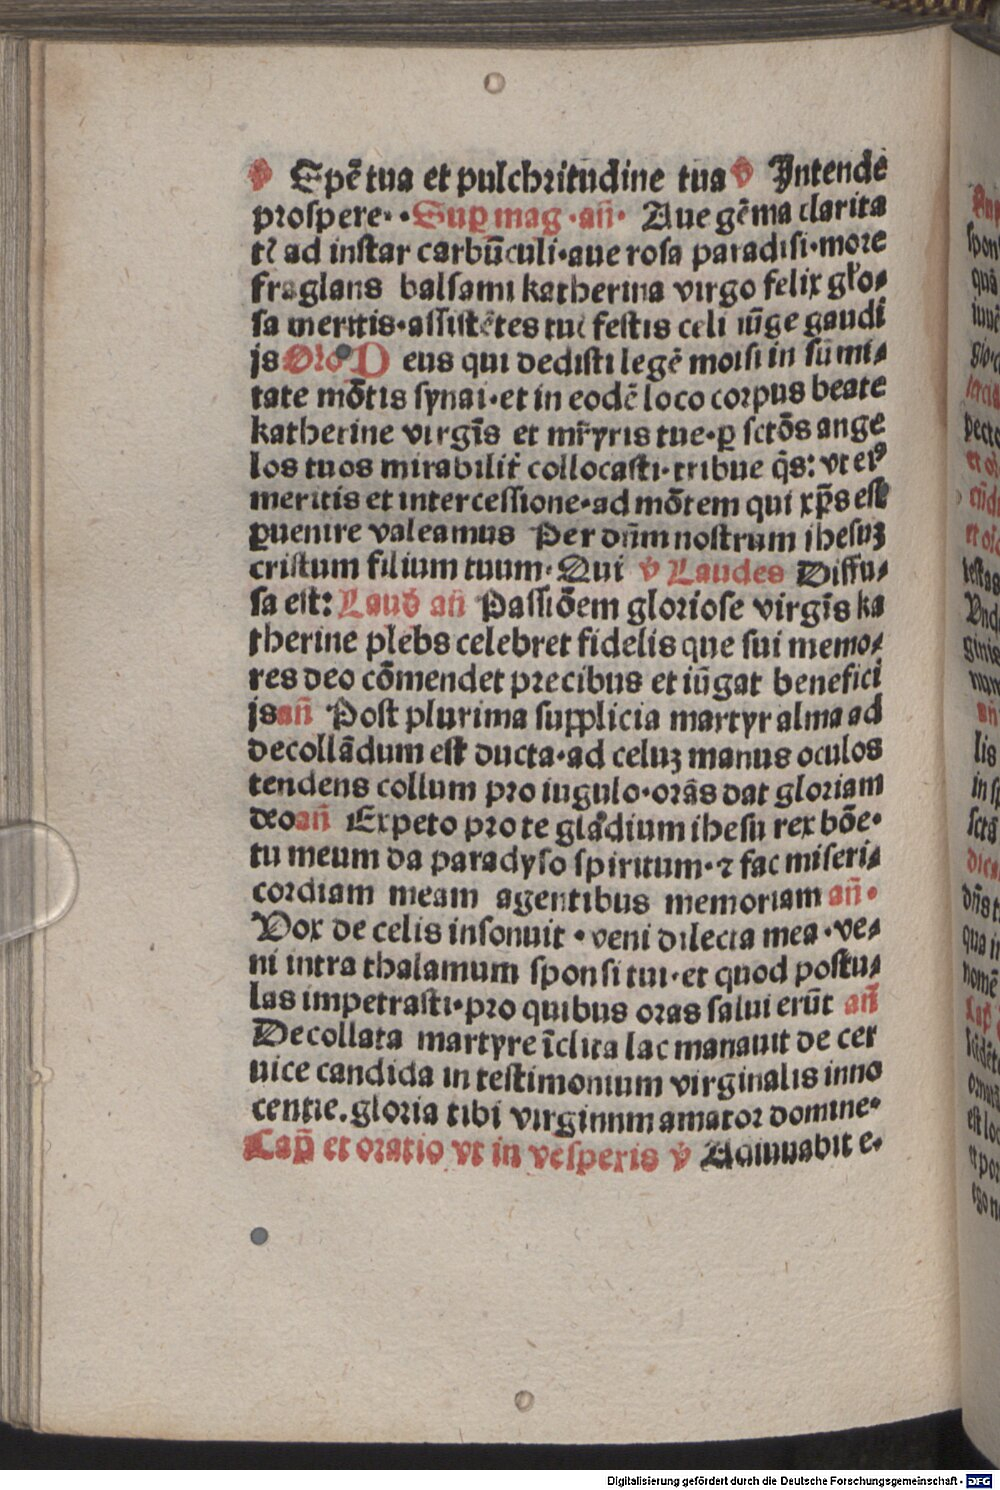 ℟ Spē tua et pulchritudine tua ℣ Intende
prospere· ·Suꝑ mag ·an̄· Aue gēma clarita
tꝭ ad instar carbūculi·aue rosa paradisi·more
fraglans balsami katherina virgo felix gło⸗
sa meritis·assistētes tue festis celi iūge gaudi
js Oro D eus qui dedisti legē moisi in sūmi⸗
tate mōtis synai·et in eodē loco corpus beate
katherine virgīs et mr̄yris tue·ꝑ sctōs ange
los tuos mirabilit̄ collocasti·tribue q̄s: vt eiꝰ
meritis et intercessione·ad mōtem qui xp̄s est
ꝑuenire valeamus Per dn̄m nostrum ihesuꝫ
cristum filium tuum· Qui ℣ Laudes Diffu⸗
sa est: Laud an̄ Passiōem gloriose virgīs ka
therine plebs celebret fidelis que sui memo⸗
res deo cōmendet precibus et iūgat benefici
js an̄ Post plurima supplicia martyr alma ad
decollādum est ducta·ad celuꝫ manus oculos
tendens collum pro iugulo·orās dat gloriam
deo an̄ Expeto pro te gladium ihesu rex bōe·
tu meum da paradyso spiritum·⁊ fac miseri⸗
cordiam meam agentibus memoriam an̄·
Vox de celis insonuit · veni dilecta mea·ve⸗
ni intra thalamum sponsi tui·et quod postu⸗
las impetrasti·pro quibus oras salui erūt an̄
Decollata martyre īclita lac manauit de cer
uice candida in testimonium virginalis inno
centie. gloria tibi virginnm amator domine·
Cap̄ et oratio vt in vesperis ℣ Adiuuabit e·
Digitalisierung gefördert durch die Deutsche Forschungsgemeinschaft - DFG